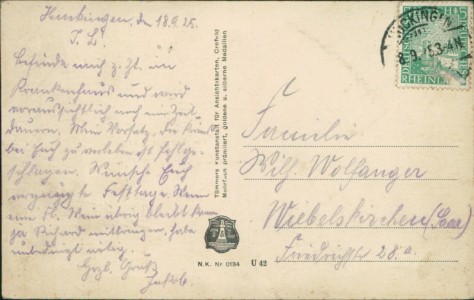 Huckingen, den 18.9.25.
I. L.!
Befinde mich z. Zt. im
Krankenhaus und wird
voraussichtlich noch eine Zeit
dauern. Mein Vorsatz, die
bei Euch zu verleben ist fehlge-
schlagen. Wünsche Euch
vergnügte Festtage. Wenn
eine Fl. Wein übrig bleibt kann
ja Richard mitbringen, habe
unbedingt nötig.
Herzl. Gruß
Jakob.
Tümmers Kunstanstalt für Ansichtskarten, Crefeld
Mehrfach prämiiert, goldene u. silberne Medaillen
N.K. Nr 0134 U 42
HUCKINGEN
RHEINL
Familie
Wilh. Wolfanger
Wiebelskirchen (Saar)
Friedrichstr 28.a.